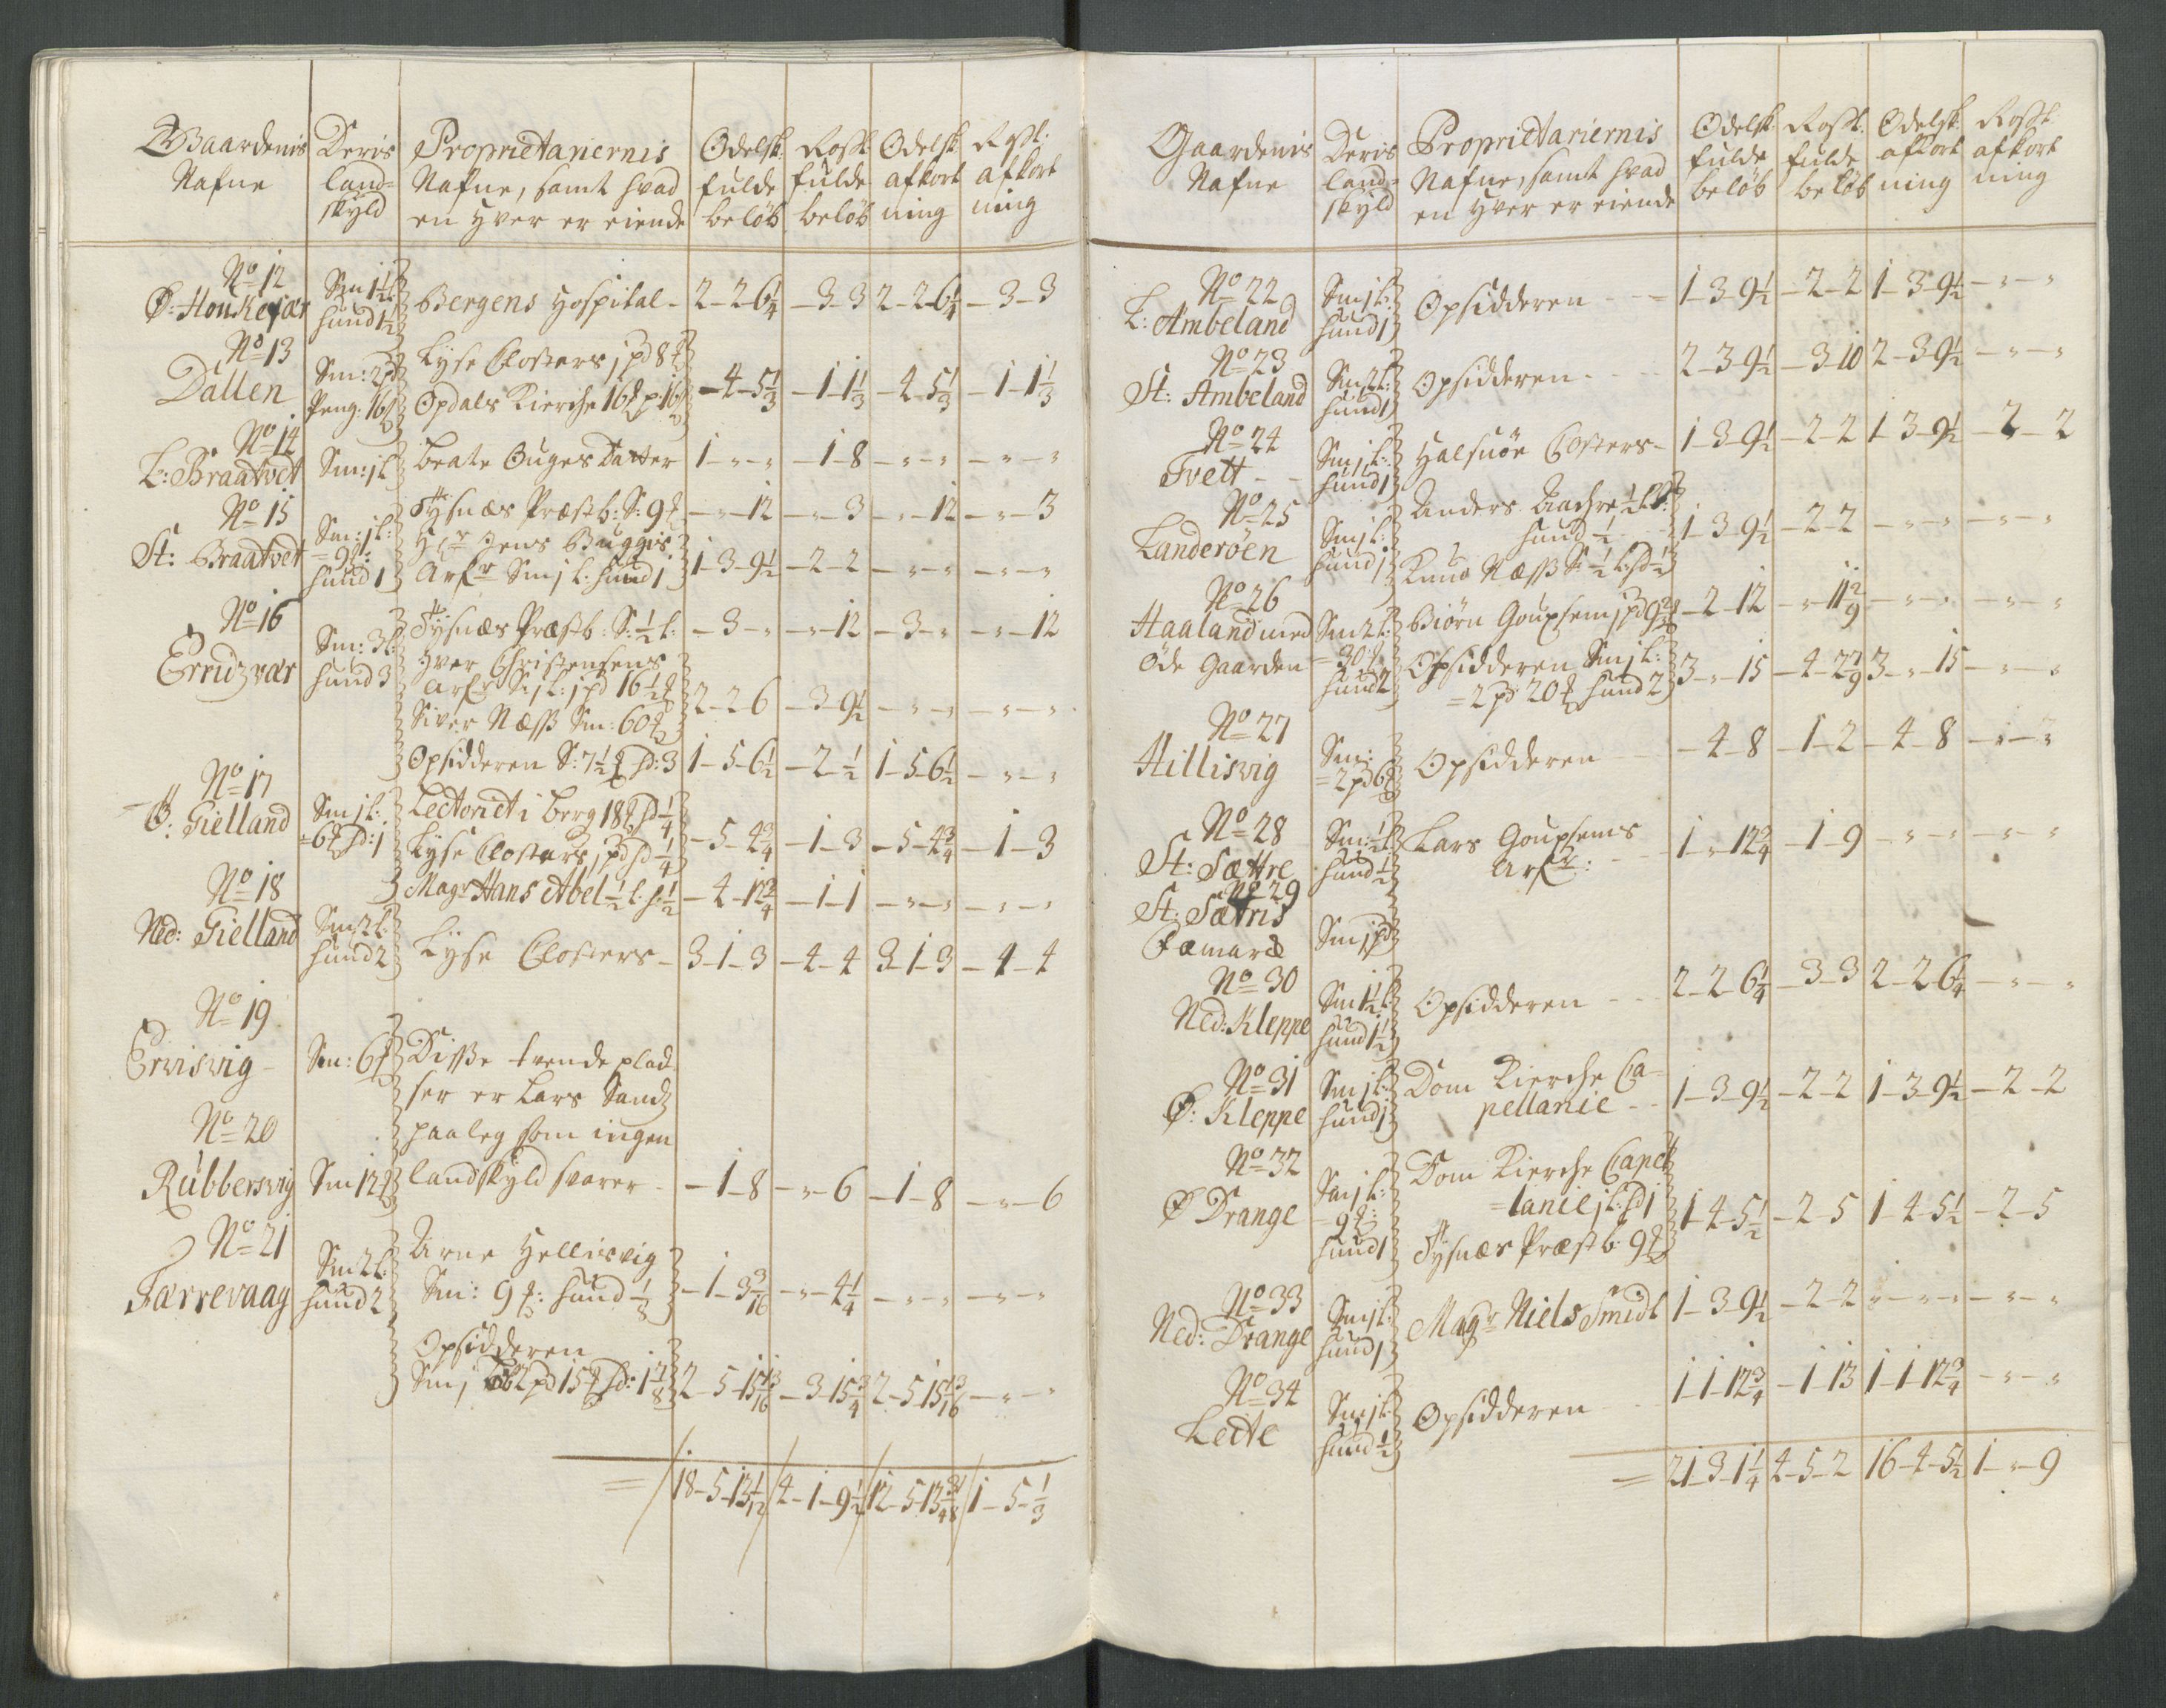 Gaardenis Nafne | Deris land= skyld | Proprietariernis Nafne, samt hvad en hver er eiende | Odelsk: fulde beløb | Rosk: fulde beløb | Odelsk: afkort ning | Rosk: afkort ning
No 12
Ø: Houkefær | Sm 1½ l: hund 1½ | Bergens Hospital - | 2-2-6¼ | -3-3 | 2-2-6¼ | -3-3
No 13
Dallen | Sm: 2 pd Peng: 16 s | Lyse Closters 1 pd 8 Opdals Kierche 16 p: 16 s | -4-5⅓ | -1-1⅓ | -4-5⅓ | -1-1⅓
No 14
L: Braatvet | Sm: 1 l | Beate Ouges datter | 1-"-" | -1-8 | -"-" | -"-"
No 15
St: Braatvet | Sm: 1 l: =9: hund 1 | Tysnæs Præstb: S: 9 | -"-12 | -"-3 | -"-12 | -"-3
Hr Jens Bugges Arfr Sm 1 l: hund 1 | 1-3-9½ | -2-2 | -"-" | -"-"
No 16
Erridzvær | Sm: 3 l: hund 3 | Tysnæs Præstb: S: ½ l: | -3-" | -"-12 | -3-" | -"-12
Hver Christensens
Arfr S 1 l: 1 pd 16½
Siver Næss Sm: 60 | 2-2-6 | -3-9½ | -"-" | -"-"
Opsidderen S: 7½ hd: 3 | 1-5-6½ | -2-½ | 1-5-6½ | -"-"
No 17
Ø: Gielland | Sm 1 l: =6 hd: 1 | Lectoriet i Berg 18 hd ¼
Lyse Closters 1 pd hd ¼ | -5-4¾ | -1-3 | -5-4¾ | -1-3
Magr Hans Abel ½ l: h ½ | -4-12¾ | -1-1 | -"-" | -"-"
No 18
Ned: Gielland | Sm 2 l: hund 2 | Lyse Closters - | 3-1-3 | -4-4 | 3-1-3 | -4-4
No 19
Erviswig - | Sm: 6 | Disse tvende plad
ser er Lars Sandz
No 20
paaleg som ingen
Rubberswig | Sm 12 | landskyld svarer - | -1-8 | -"-6 | -1-8 | -"-6
No 21
Færrevaag | Sm 2 l: hund 2 | Arne Hellisvig
Sm: 9: hund ⅛ | -1-3 3/16 | -"-4¼ | -"-" | -"-"
Opsidderen
Sm 1 l 2 pd 15 hd: 1⅞ | 2-5-15 13/16 | -3-15¾ | 2-5-15 13/16 | -"-"
= 18-5-13 1/12 | 4-1-9½ | 12-5-13 | 1-5-⅓
Gaardenis Nafne | Deris land= skyld | Proprietariernis Nafne, samt hvad en hver er eiende | Odelsk: fulde beløb | Rosk: fulde beløb | Odelsk: afkort ning | Rosk: afkort ning
No 22
L: Ambeland | Sm 1 l: hund 1 | Opsidderen - - | 1-3-9½ | -2-2 | 1-3-9½ | -"-"
No 23
St: Ambeland | Sm 2 l: hund 1 | Opsidderen - - | 2-3-9½ | -3-10 | 2-3-9½ | -"-"
No 24
Tvett - - | Sm 1 l: hund 1 | Halsnøe Closters - | 1-3-9½ | -2-2 | 1-3-9½ | -2-2
No 25
Landerøen | Sm 1 l: hund 1 | Anders Aachre ½ l:
hund ½ | 1-3-9½ | -2-2 | -"-" | -"-"
Knud Næss S: ½ l: hd ½
No 26
Haaland med øde gaarden | Sm 2 l: =30 hund 2 | Biørn Goupsem 1 pd 9 | -2-12 | -"-11 2/9 | -"-" | -"-"
Opsidderen Sm 1 l:
=2 pd 20 hund 2 | 3-"-15 | -4-2 7/9 | 3-"-15 | -"-"
No 27
Hilliswig | Sm: =2 pd 6 | Opsidderen | -4-8 | -1-2 | -4-8 | -"-"
No 28
St: Sættre | Sm: ½ l: hund ½ | Lars Goupsems
Arfr: - - | 1-"-12¾ | -1-9 | -"-" | -"-"
No 29
St: Sætris
Fæmark | Sm 1 pd
No 30
Ned: Kleppe | Sm 1½ l: hund 1½ | Opsidderen - - | 2-2-6¼ | -3-3 | 2-2-6¼ | -"-"
No 31
Ø: Kleppe | Sm 1 l: hund 1 | Dom Kierche Ca=
pellanie - - | 1-3-9½ | -2-2 | 1-3-9½ | -2-2
No 32
Ø Drange | Sm 1 l: =9: hund 1 | Dom Kierche Capel
=lanie 1 l: hd 1 | 1-4-5½ | -2-5 | 1-4-5½ | -2-5
Tysnæs Præstb: 9
No 33
Ned: Drange | Sm 1 l: hund 1 | Magr Niels Smidt | 1-3-9½ | -2-2 | -"-" | -"-"
No 34
Leite | Sm 1 l: hund ½ | Opsidderen - - | 1-1-12¾ | -1-13 | 1-1-12¾ | -"-"
= 21-3-1¼ | 4-5-2 | 16-4-5½ | 1-"-9